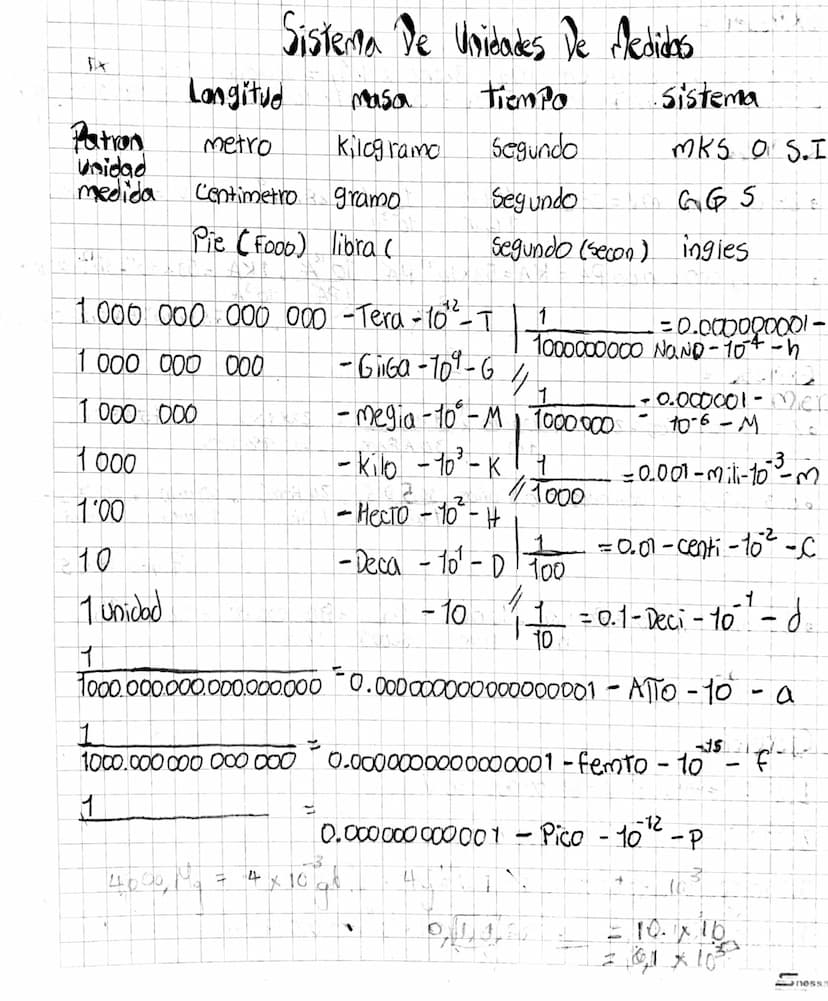 Sistema De Unidades De Medidas
Longitud masa Tiempo Sistema
Patron metro kilogramo Segundo MKS O S.I
unidad
medida Centimetro gramo Segundo CGS
Pie (Foob) libra ( segundo (secon) ingles
1 000 000 000 000 - Tera - 10¹² - T | 1/1000000000 = 0.000000001 - NaNO - 10⁻⁴ - h
1 000 000 000 - GiiGa - 10⁹ - G //
1 000 000 - megia - 10⁶ - M | 1/1000000 = 0.000001 - Micr 10⁻⁶ - M
1 000 - kilo - 10³ - K | 1/1000 = 0.001 - mili - 10⁻³ - m
1'00 - HecTO - 10² - H //
10 - Deca - 10¹ - D | 1/100 = 0.01 - centi - 10⁻² - C
1 unidad - 10 // 1/10 = 0.1 - Deci - 10⁻¹ - d
1/1000.000.000.000.000.000 = 0.000000000000000001 - ATTO - 10 - a
1/1000.000 000 000 000 = 0.0000000000000001 - femto - 10⁻¹⁵ - f
1/ = 0.000000000001 - Pico - 10⁻¹² - P
= 10.1 x 10